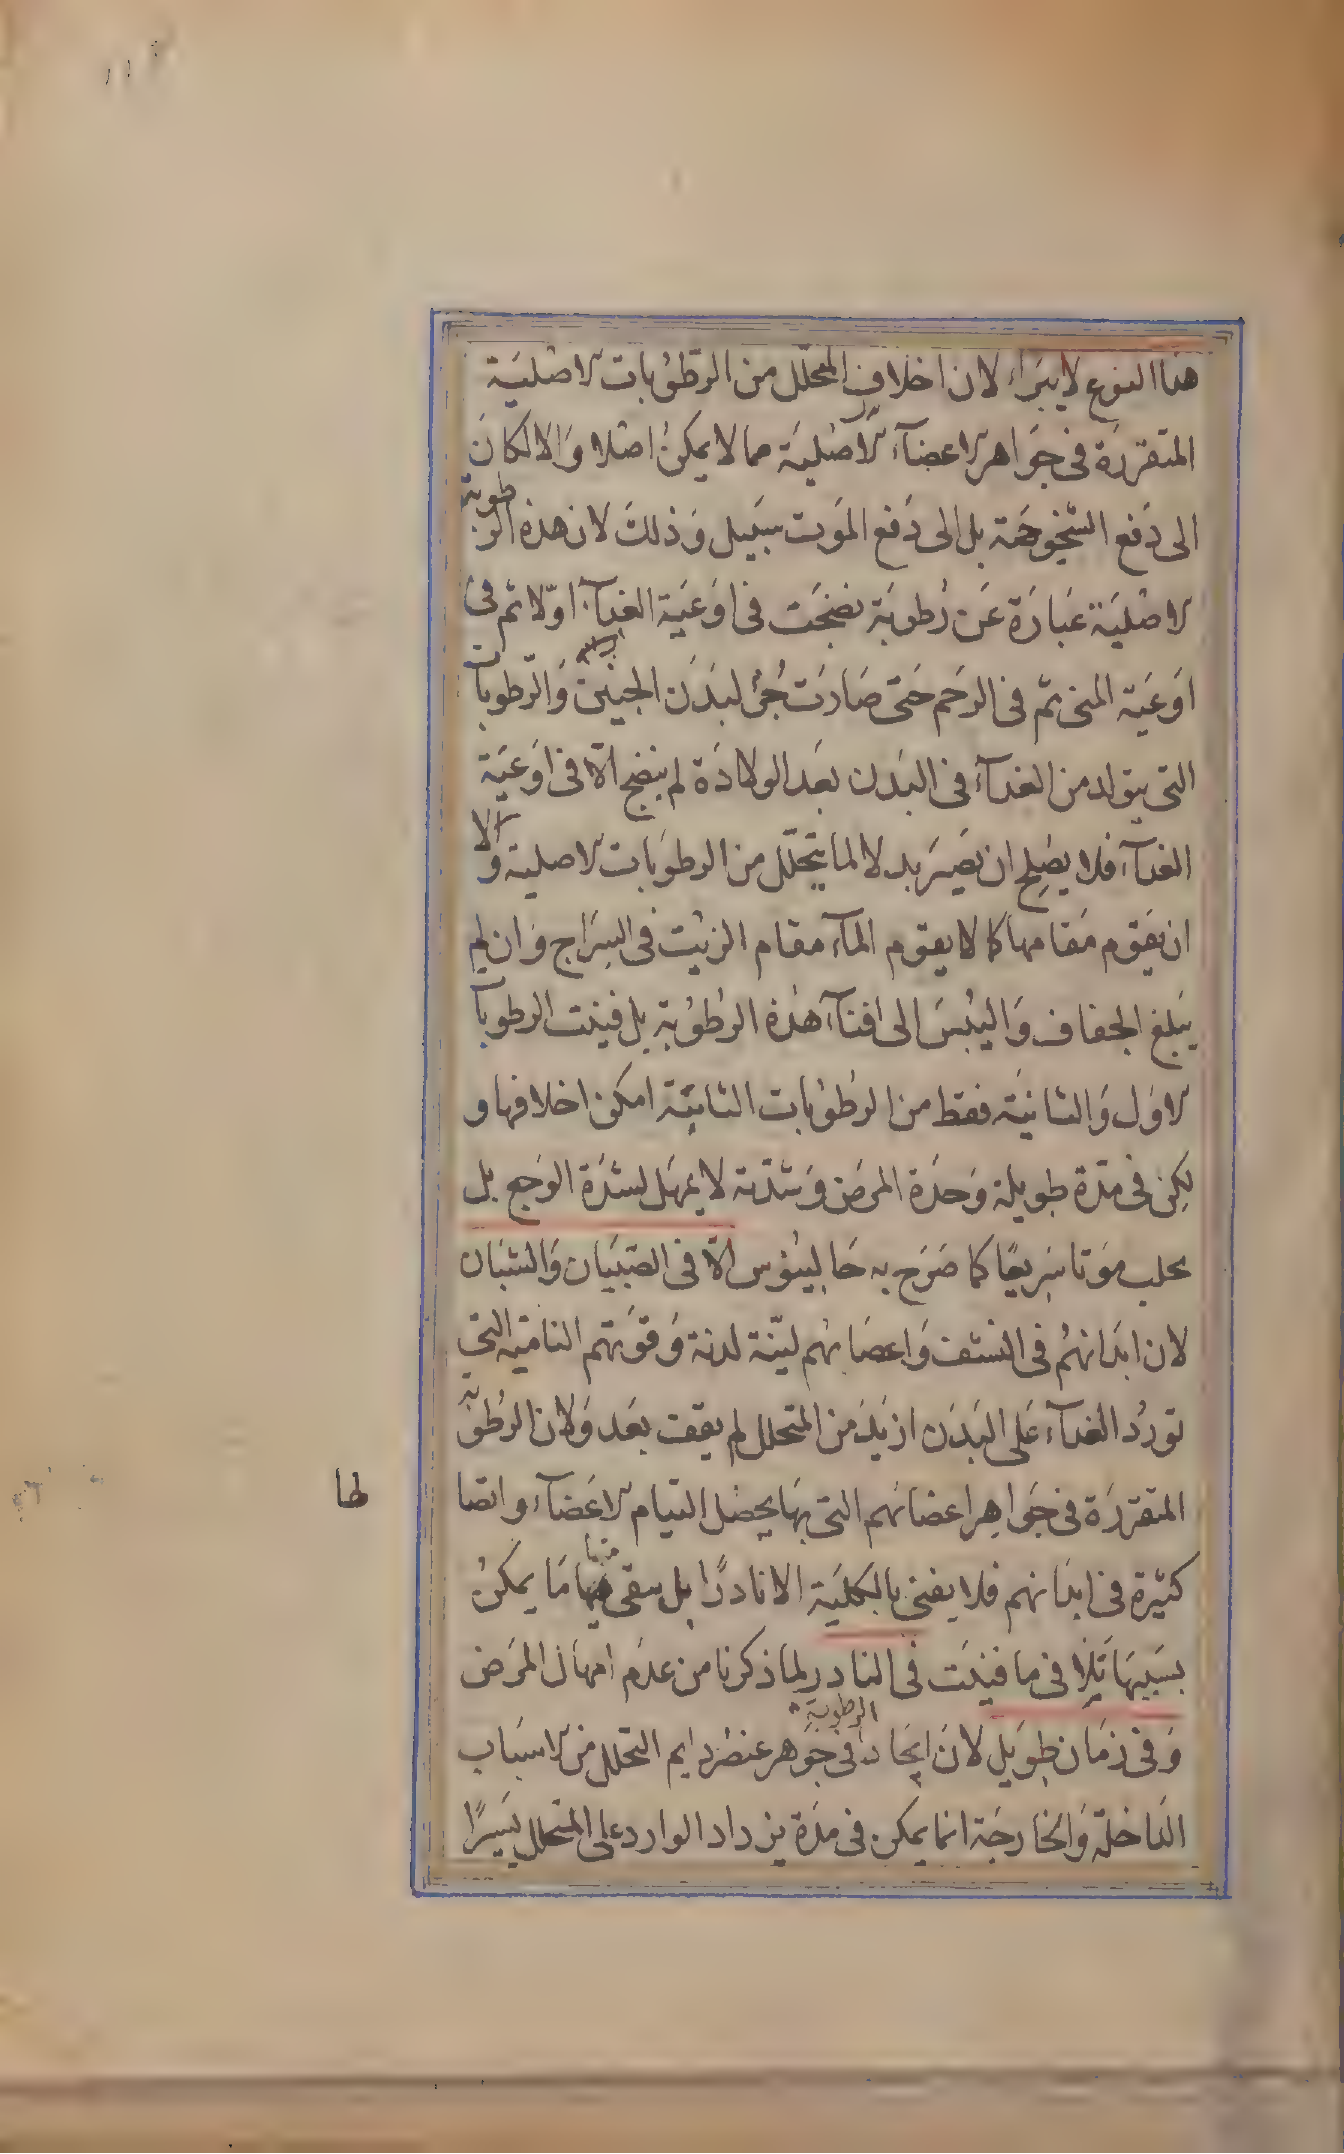 هذا النوع لا يبراء لان اخلاف المتحلل من الرطوبات الاصلية
المتقررة فى جواهر الاعضآء الاصلية مما لا يمكن اصلا والا لكان
الى دفع الشيخوخة بل الى دفع الموت سبيل وذلك لان هذه الرطوبة
الاصلية عبارة عن رطوبة نضجت فى اوعية الغذآء اولا ثم فى
اوعية المنى ثم فى الرحم حتى صارت جزء لبدن الجنين والرطوبات
التى يتولد من الغذآء فى البدن بعد الولادة لم ينضج الا فى اوعية
الغذآء فلا يصلح ان يصير بدلا لما يتحلل من الرطوبات الاصلية ولا
ان يقوم مقامها كما لا يقوم المآء مقام الزيت فى السراج وان لم
يبلغ الجفاف واليبس الى افنآء هذه الرطوبة بل فنيت الرطوبات
الاول والثانية فقط من الرطوبات الثانية امكن اخلافها و
لكن فى مدة طويلة وحدة المرض وشدته لا يمهل لشدة الوجع بل
يجلب موتا سريعا كما صرح به جالينوس الا فى الصبيان والشبان
لان ابدانهم فى النشف واعصابهم لينة لدنة وقوتهم النامية التى
تورد الغذآء على البدن ازيد من المتحلل لم يقف بعد ولان الرطوبة
المتقررة فى جواهر اعضائهم التى بها يحصل التيام الاعضآء واتصا
لها
كثيرة فى ابدانهم فلا يفنى بالكلية الا نادرا بل يبقى منها ما يمكن
بسببها تلافى ما فنيت فى النادر لما ذكرنا من عدم امهال المرض
وفى زمان طويل لان ايجاد الرطوبة فى جوهر عنصر دايم التحلل من الاسباب
الداخلة والخارجة انما يمكن فى مدة يزداد الوارد على المتحلل يسيرا